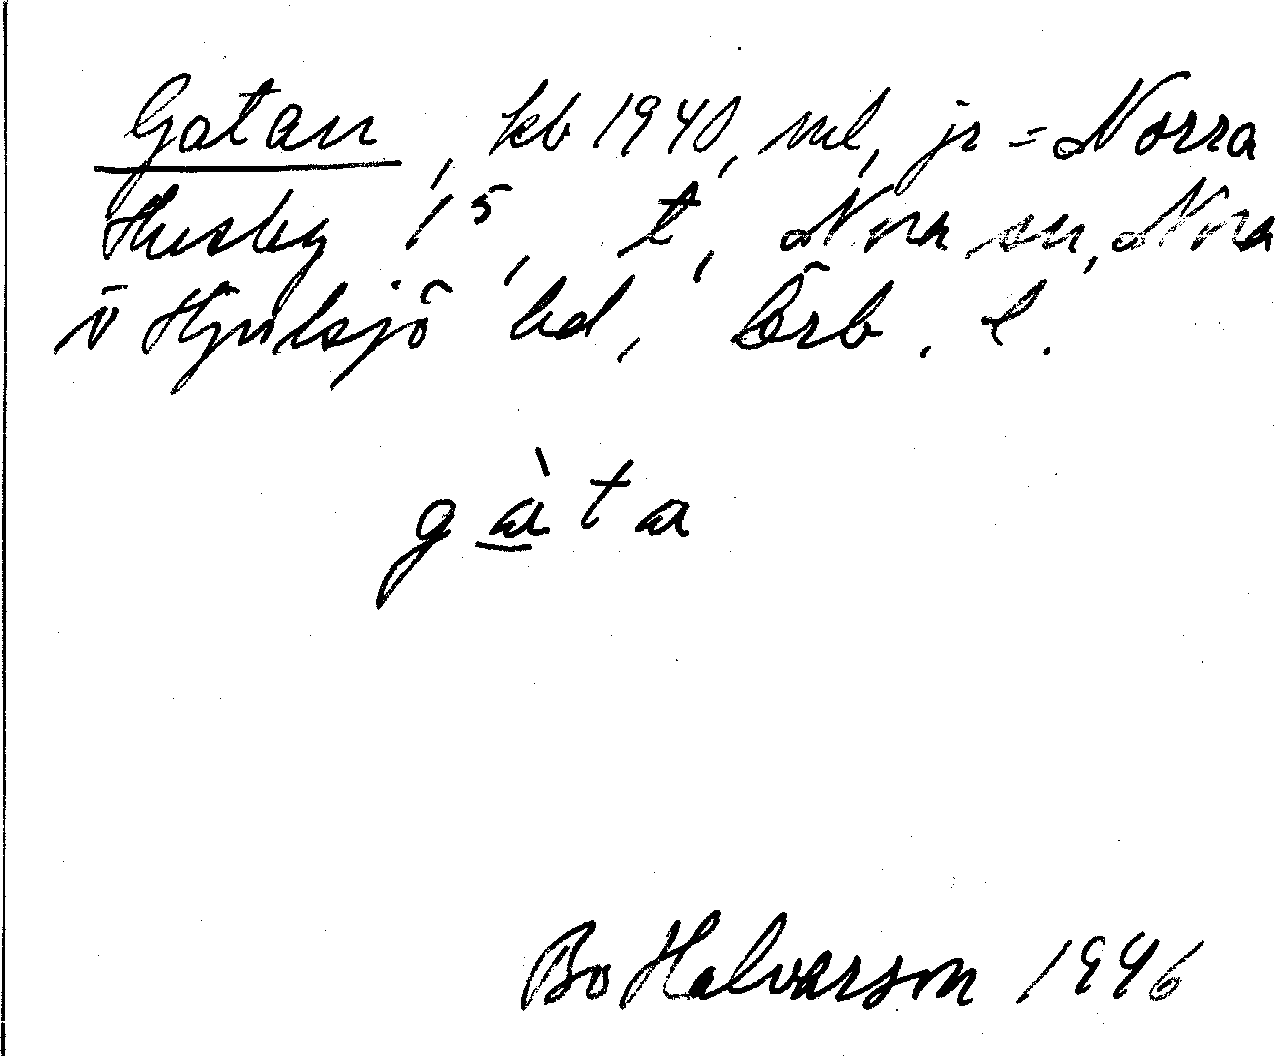 Gatan, kb 1940, ml, jr = Norra
Husby 1⁵, t, Nora sn, Nora
o Hjulsjö bd, Örb. l.
gàta
Bo Halvarson 1996